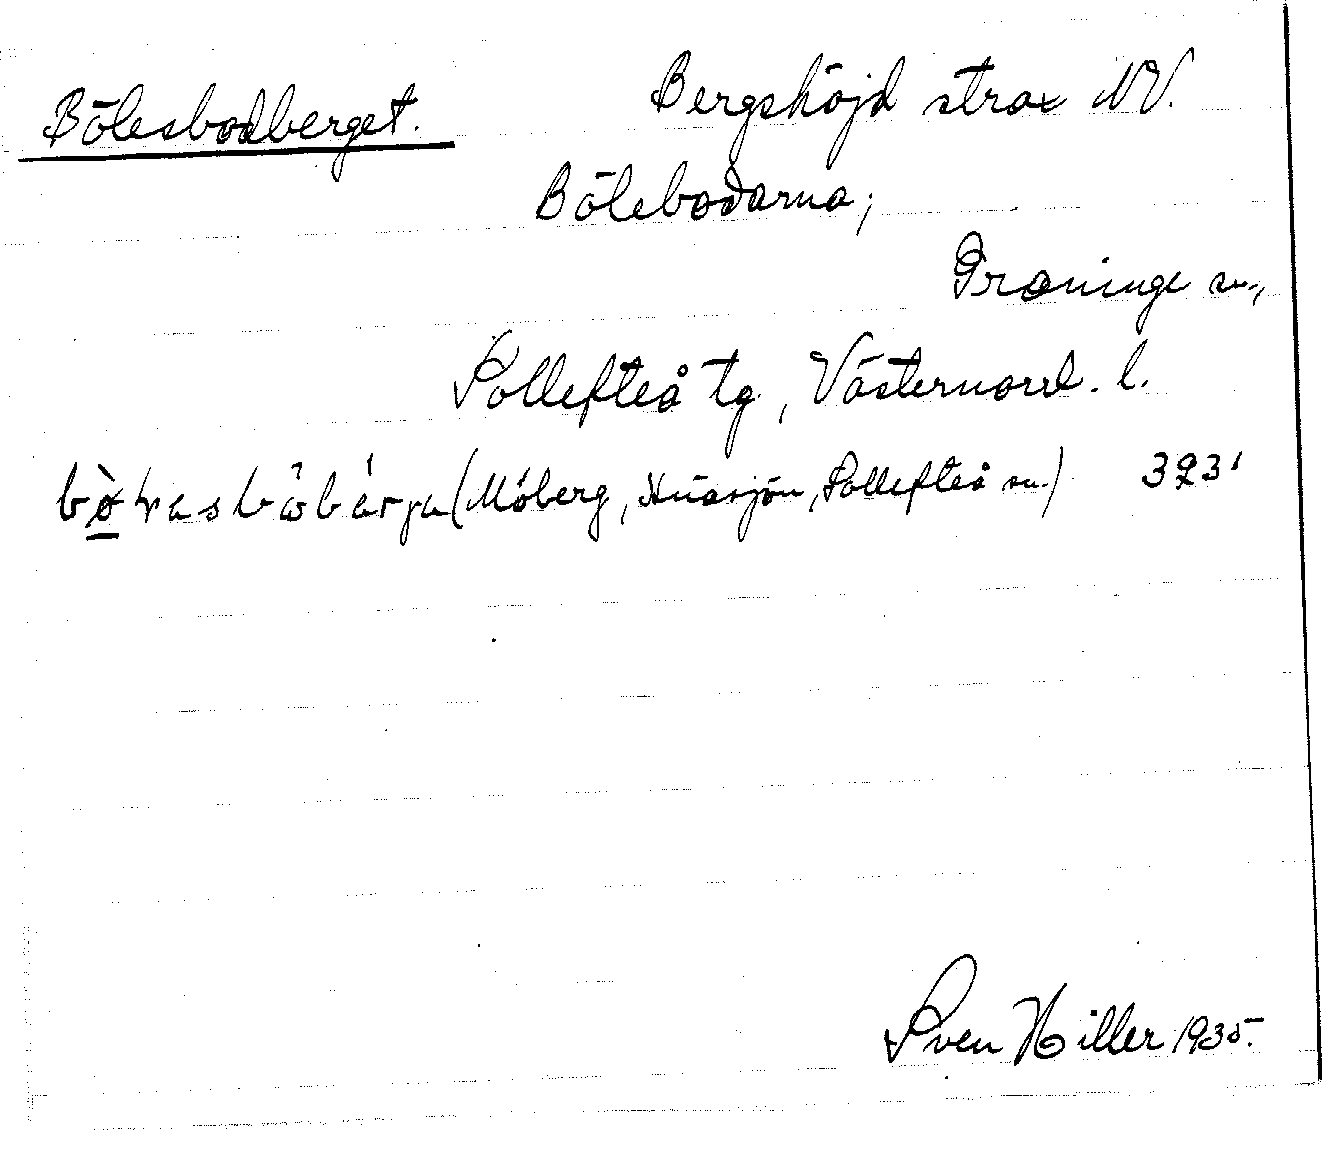 Bölesbodberget. Bergshöjd strax NV.
Bölebodarna;
Graninge sn.,
Sollefteå tg, Västernorrl. l.
(Moberg, Krånsjön, Sollefteå sn.) 3931
Sven Hiller 1935.